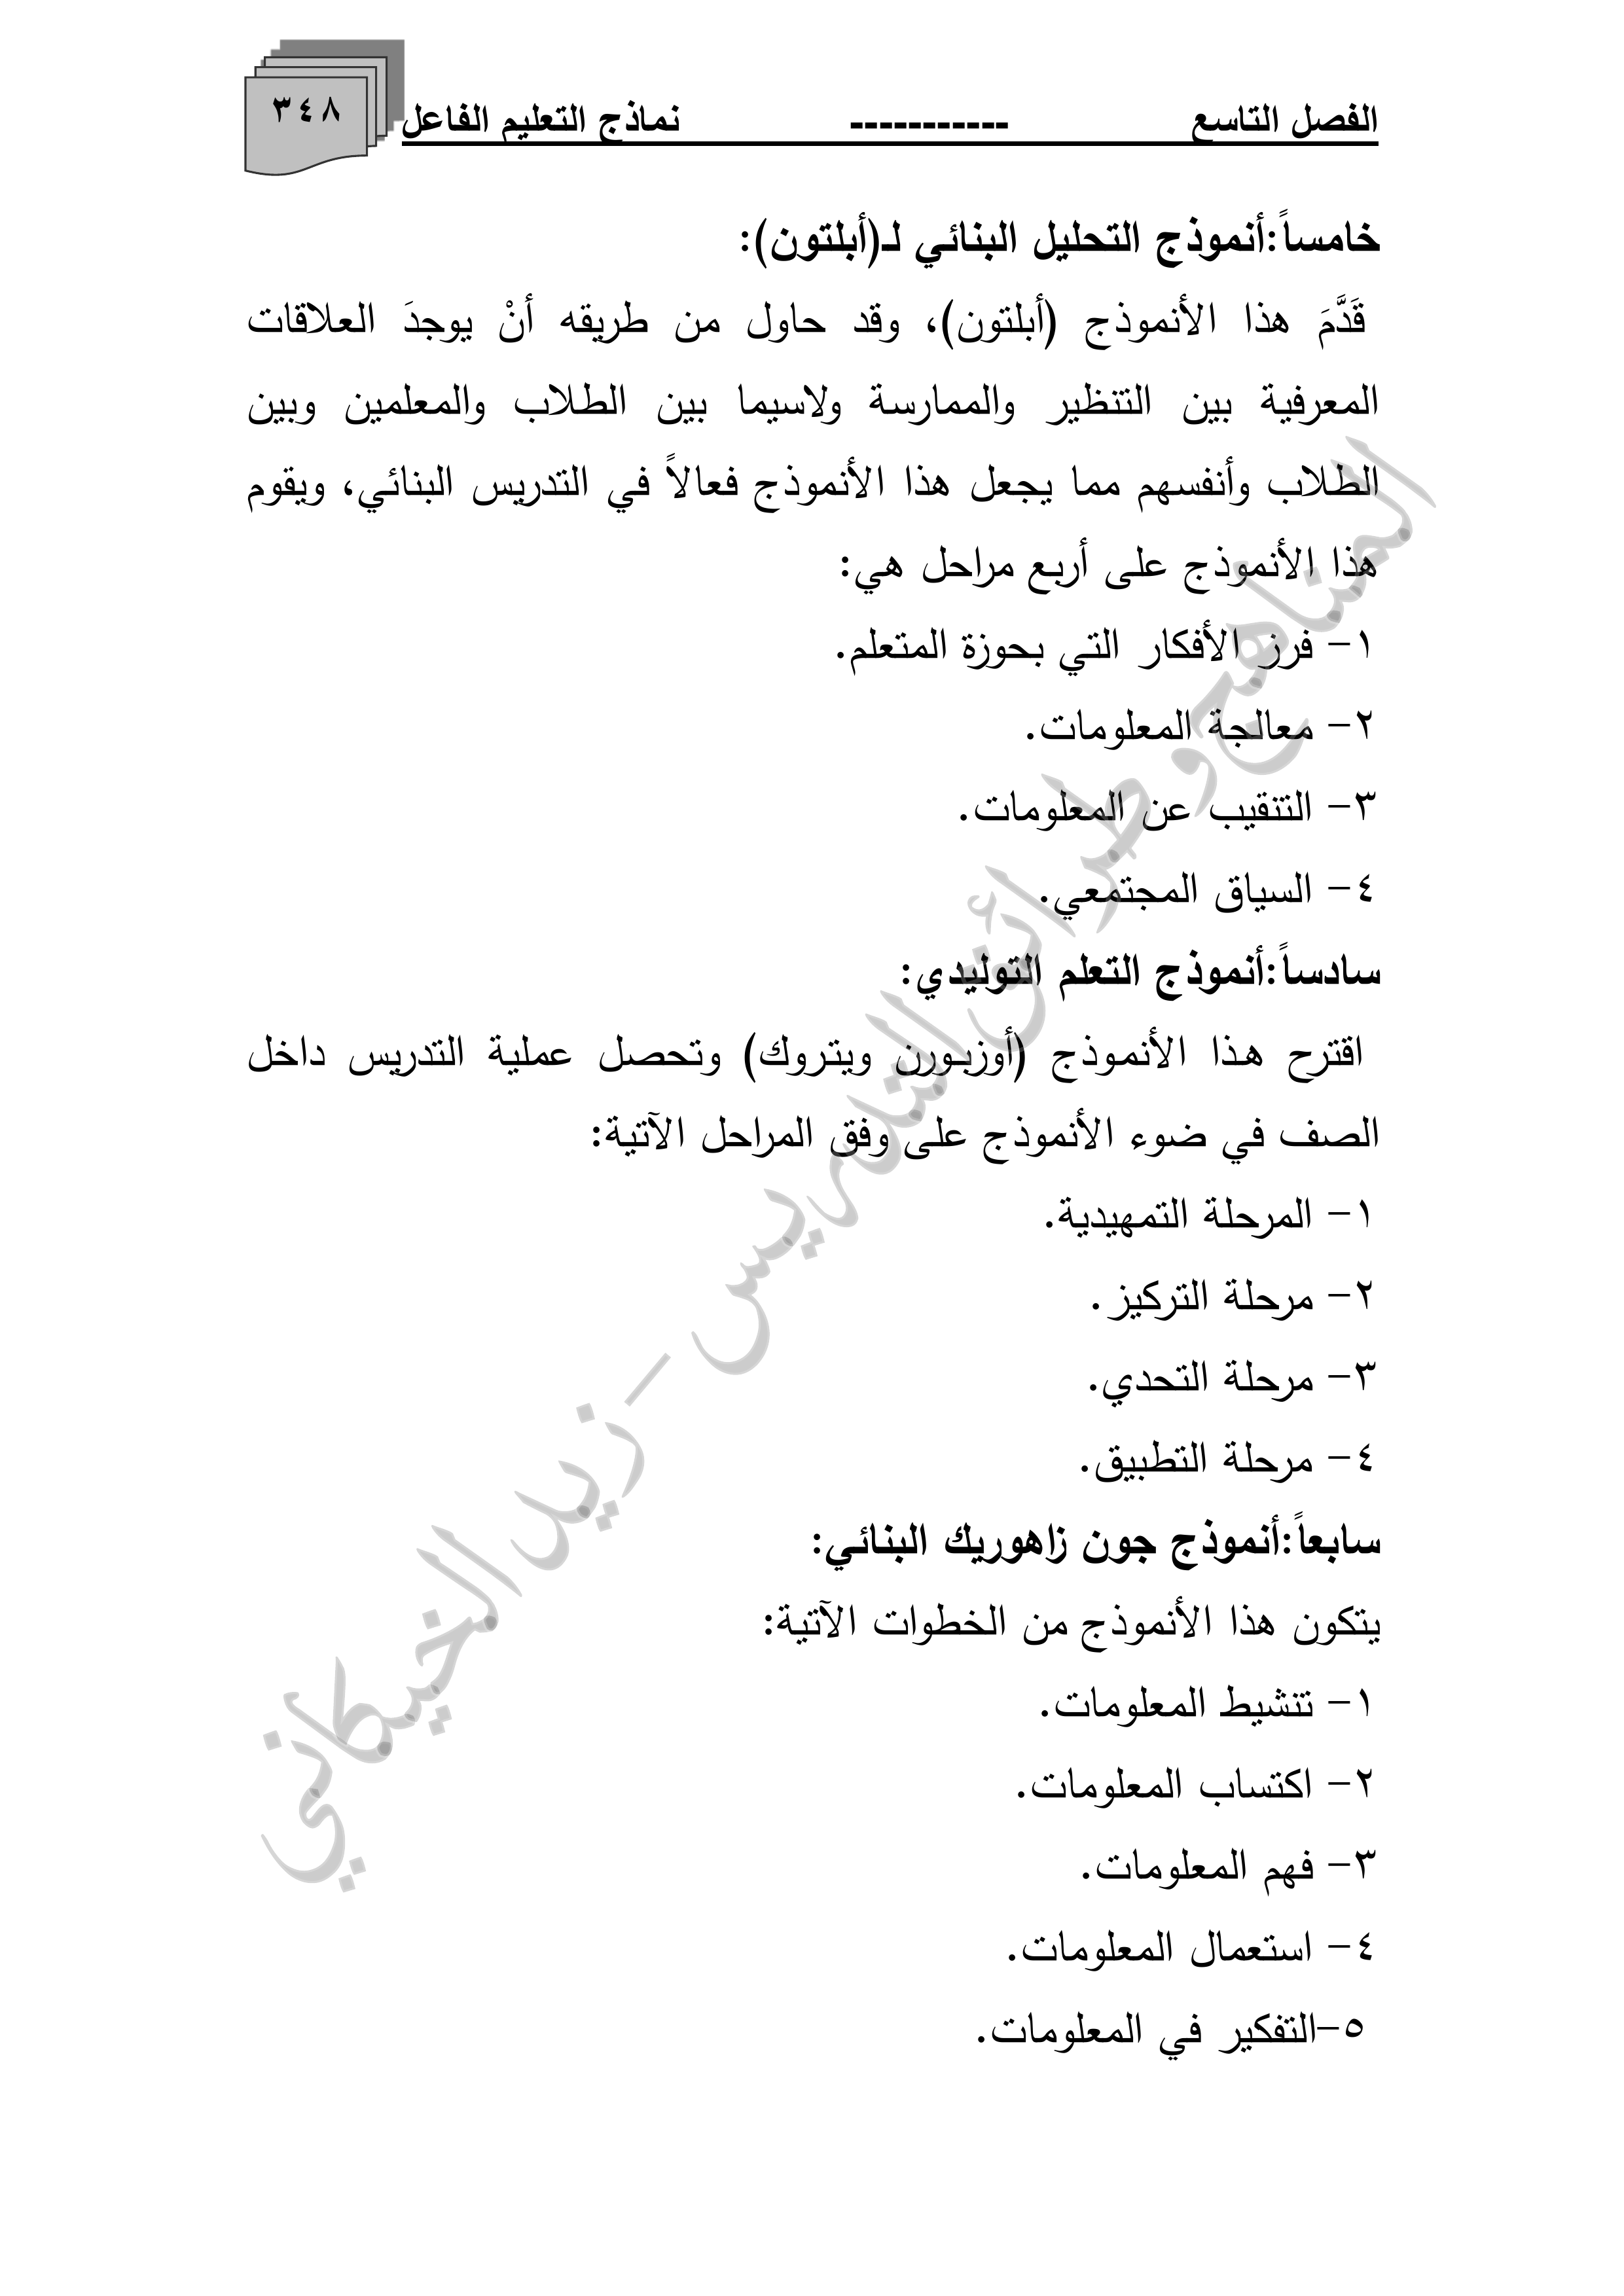 الفصل التاسع ----------- نماذج التعليم الفاعل ٣٤٨
خامساً:أنموذج التحليل البنائي لـ(أبلتون):
قَدَّمَ هذا الأنموذج (أبلتون)، وقد حاول من طريقه أنْ يوجدَ العلاقات
المعرفية بين التنظير والممارسة ولاسيما بين الطلاب والمعلمين وبين
الطلاب وأنفسهم مما يجعل هذا الأنموذج فعالاً في التدريس البنائي، ويقوم
هذا الأنموذج على أربع مراحل هي:
١- فرز الأفكار التي بحوزة المتعلم.
٢- معالجة المعلومات.
٣- التنقيب عن المعلومات.
٤- السياق المجتمعي.
سادساً:أنموذج التعلم التوليدي:
اقترح هذا الأنموذج (أوزبورن ويتروك) وتحصل عملية التدريس داخل
الصف في ضوء الأنموذج على وفق المراحل الآتية:
١- المرحلة التمهيدية.
٢- مرحلة التركيز.
٣- مرحلة التحدي.
٤- مرحلة التطبيق.
سابعاً:أنموذج جون زاهوريك البنائي:
يتكون هذا الأنموذج من الخطوات الآتية:
١- تنشيط المعلومات.
٢- اكتساب المعلومات.
٣- فهم المعلومات.
٤- استعمال المعلومات.
٥-التفكير في المعلومات.
المناهج وطرائق التدريس - زيد الخيكاني